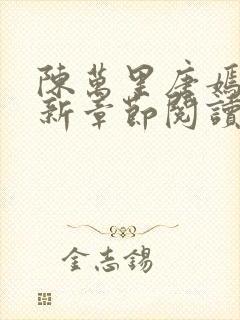 陳萬里唐嫣
新章節閱讀
金志錫